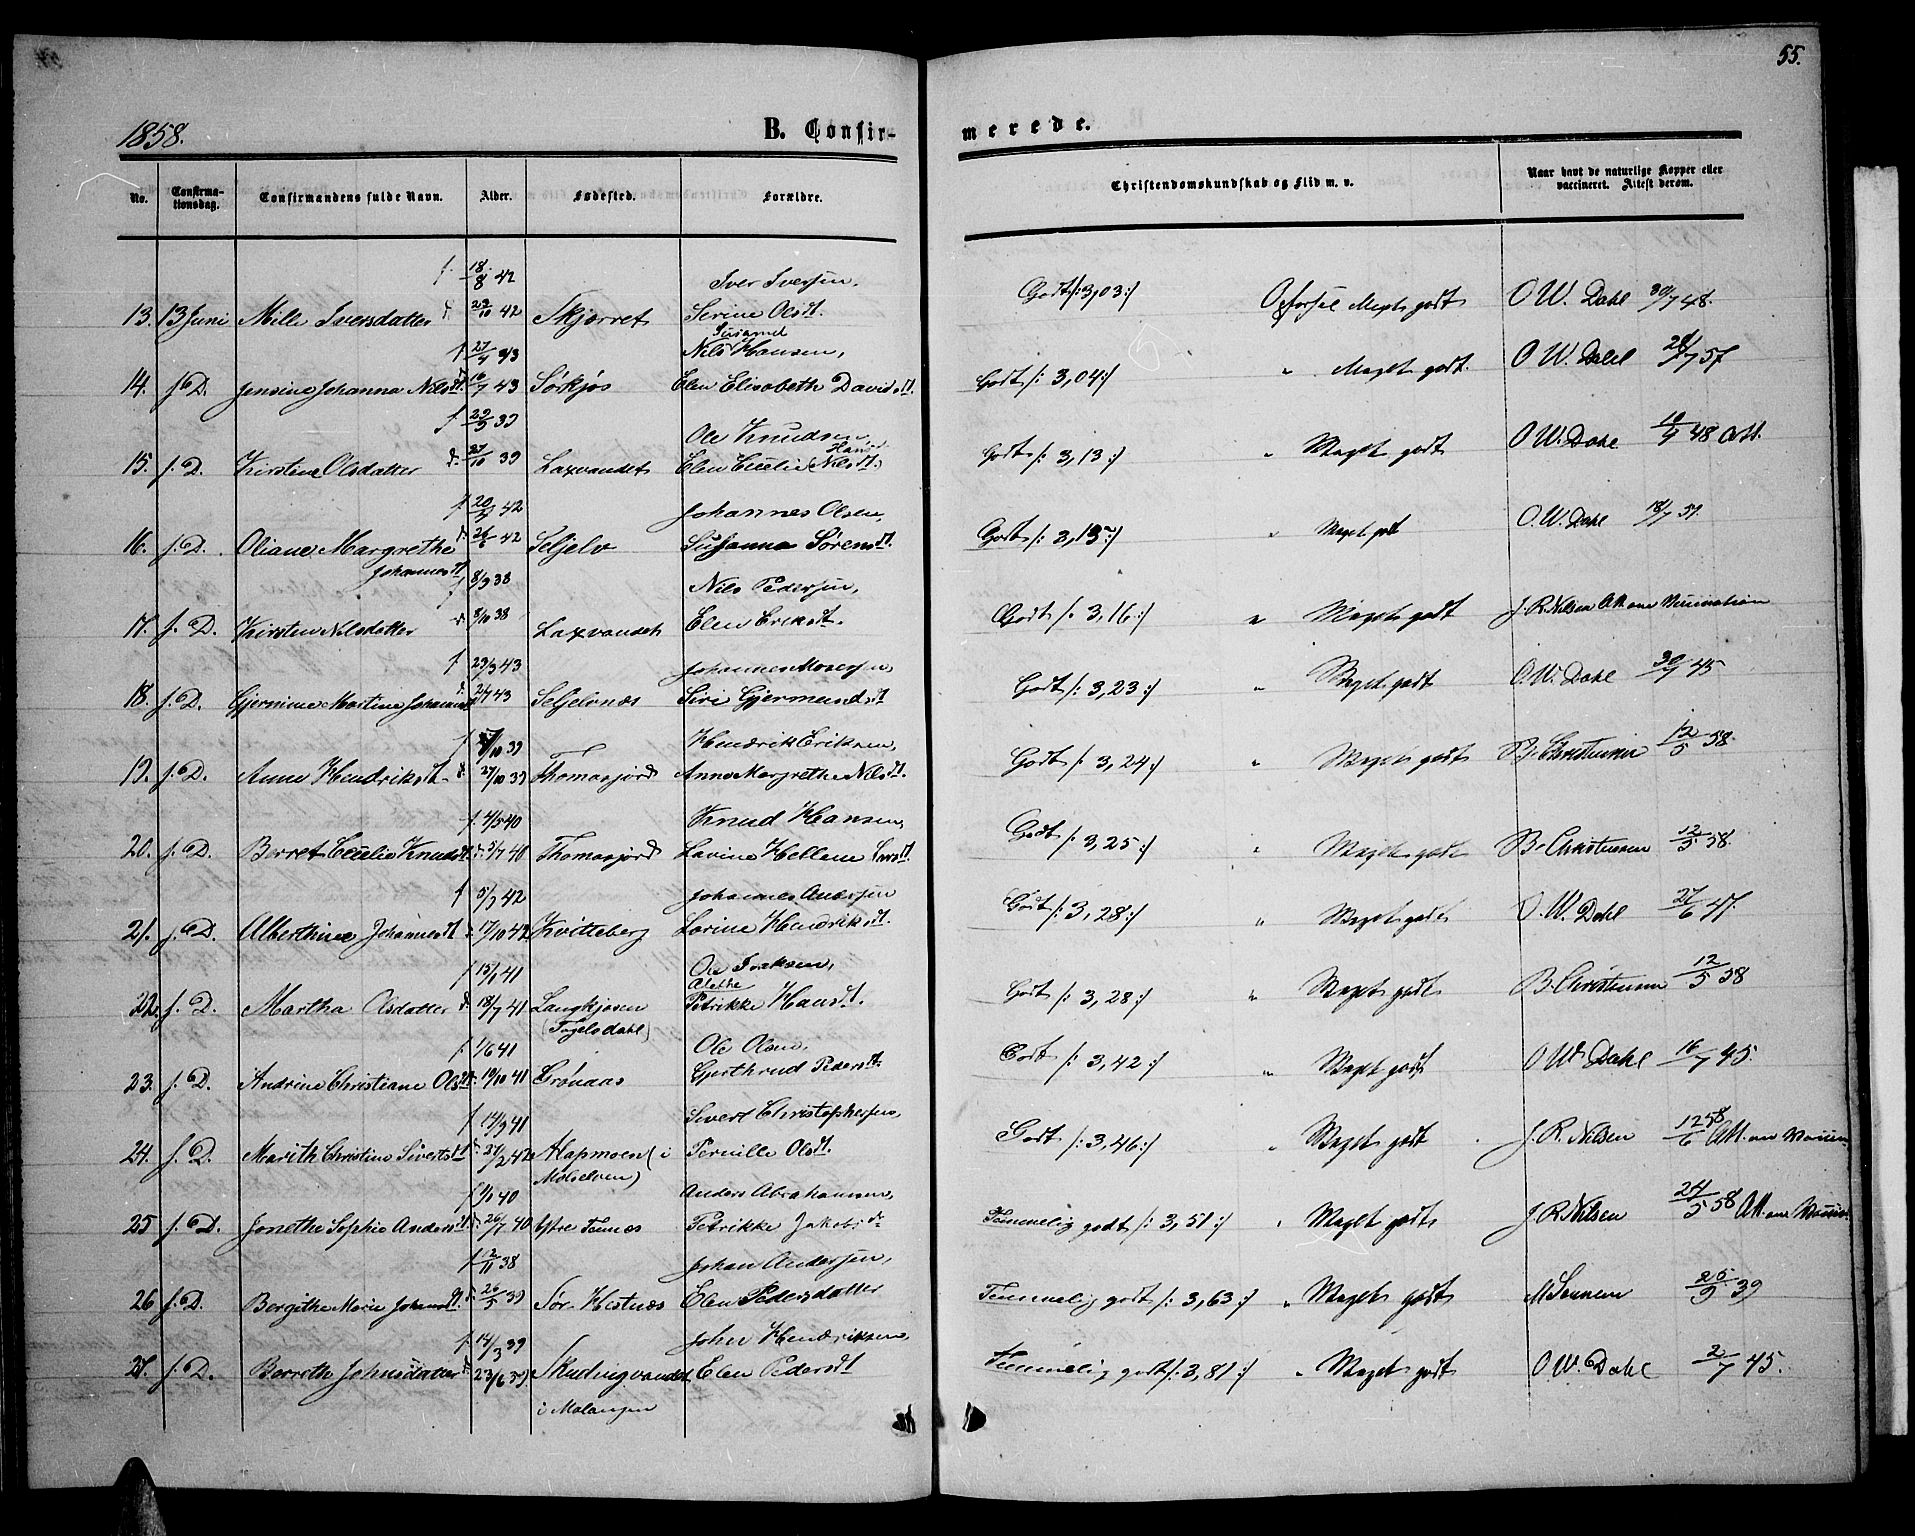 55.
1858.
B. Confir-
merede.
No.
Confirma-
tionsdag.
Confirmandens fulde Navn.
Alder.
Fødested.
Forældre.
Christendomskundskab og Flid m. v.
Naar havt de naturlige Kopper eller
vaccineret. Attest derom.
f. 18/8 42 Iver Iversen,
13. 13 Juni Mille Iversdatter d. 29/10 42 Skjærret Serine Olsdt. Godt /: 3,03 :/ Opførsel Meget godt O W. Dahl 30/7 48.
f 27/4 43 Nils Hansen,
14. s. D. Jensine Johanna Nilsdt. 16/7 43 Sørkjos Elen Elisabeth Davidsdt. Godt /: 3,04 :/ " Meget godt. O W. Dahl 57
f 29/5 39 Ole Knudsen,
15. s. D. Kirstine Olsdatter d. 27/10 39 Laxvandet Elen Cecelie Nilsdt. Godt /: 3,13 :/ " Meget godt O W. Dahl 48 Att.
f 20/4 42 Johannes Olsen,
16. s. D. Oliane Margrethe d. 26/6 42 Seljelv Susanna Sørensdt. Godt /: 3,13 :/ " Meget godt O. W. Dahl 18/7 51
Johannesdt
f 8/9 38 Nils Pedersen,
17. s. D. Kirsten Nilsdatter d. 8/10 38 Laxvandet Elen Eriksdt. Godt /: 3,16 :/ " Meget godt J. R. Nilsen Att om Vaccination
f 23/3 43 Johannes Mosesen,
18. s. D. Gjermine Martine Johannesdt d. 2/7 43 Seljelvnæs Siri Gjermundsdt Godt /: 3,23 :/ " Meget godt O. W. Dahl 30/7 45
f /10 39 Hendrik Eriksen,
19. s. D. Anne Hendriksdt. d. 27/10 39 Thomasjord Anne Margrethe Nilsdt. Godt /: 3,24 :/ " Meget godt B. Christensen 12/5 58.
f. 4/5 40 Knud Hansen,
20. s. D. Berret Cecelie Knudsdt. d. 5/7 40 Thomasjord Lavine Hellene Godt /: 3,25 :/ " Meget godt B. Christensen 12/5 58.
f 5/9 42 Johannes Andersen
21. s. D. Alberthine Johannesdt d. 17/10 42 Kvitteberg Lorine Hendriksdt. Godt /: 3,28 :/ " Meget godt O. W. Dahl 27/6 47.
f 15/1 41 Ole Isaksen,
Alethe
22. s. D. Martha Olsdatter d. 18/7 41 Langkjosen Petrikke Hansdt. Godt /: 3,28 :/ " Meget godt B. Christensen 12/5 58
(Fugelsdahl)
f. 1/6 41 Ole Olsen,
23. s. D. Andrine Christiane Olsdt. d. 10/10 41 Grønaas Gjerthrud Pedersdt. Godt /: 3,42 :/ " Meget godt O W. Dahl 16/7 45.
f 14/9 41 Sivert Christophersen,
24. s. D. Marith Christine Sivertsdt d. 27/2 42 Hapmoen (i Pernille Olsdt. Godt /: 3,46 :/ " Meget godt J. R. Nilsen 12/6 58 Att. om Vaccin
Molselven)
f 1/1 40 Anders Abrahamsen,
25 s. D. Jonetha Sophie Andersdt. d. 26/7 40 Ytre Tamnes Petrikke Jakobsdt Temmelig godt /: 3,51 :/ " Meget godt J. R. Nilsen 24/5 58 Att om Vaccin.
f 12/11 38 Johan Andersen,
26 s. D. Bergithe Marie Johansdt. d. 26/5 39 Sør-Hestnæs Elen Pedersdatter Temmelig godt /: 3,63 :/ " Meget godt M 25/9 39
f. 14/3 39 John Hendriksen,
27. s. D. Berreth Johnsdatter d. 23/6 39 Skudingvandet Elen Pedersdt Temmelig godt /: 3,81 :/ " Meget godt O. W. Dahl 2/7 45.
i Malangen